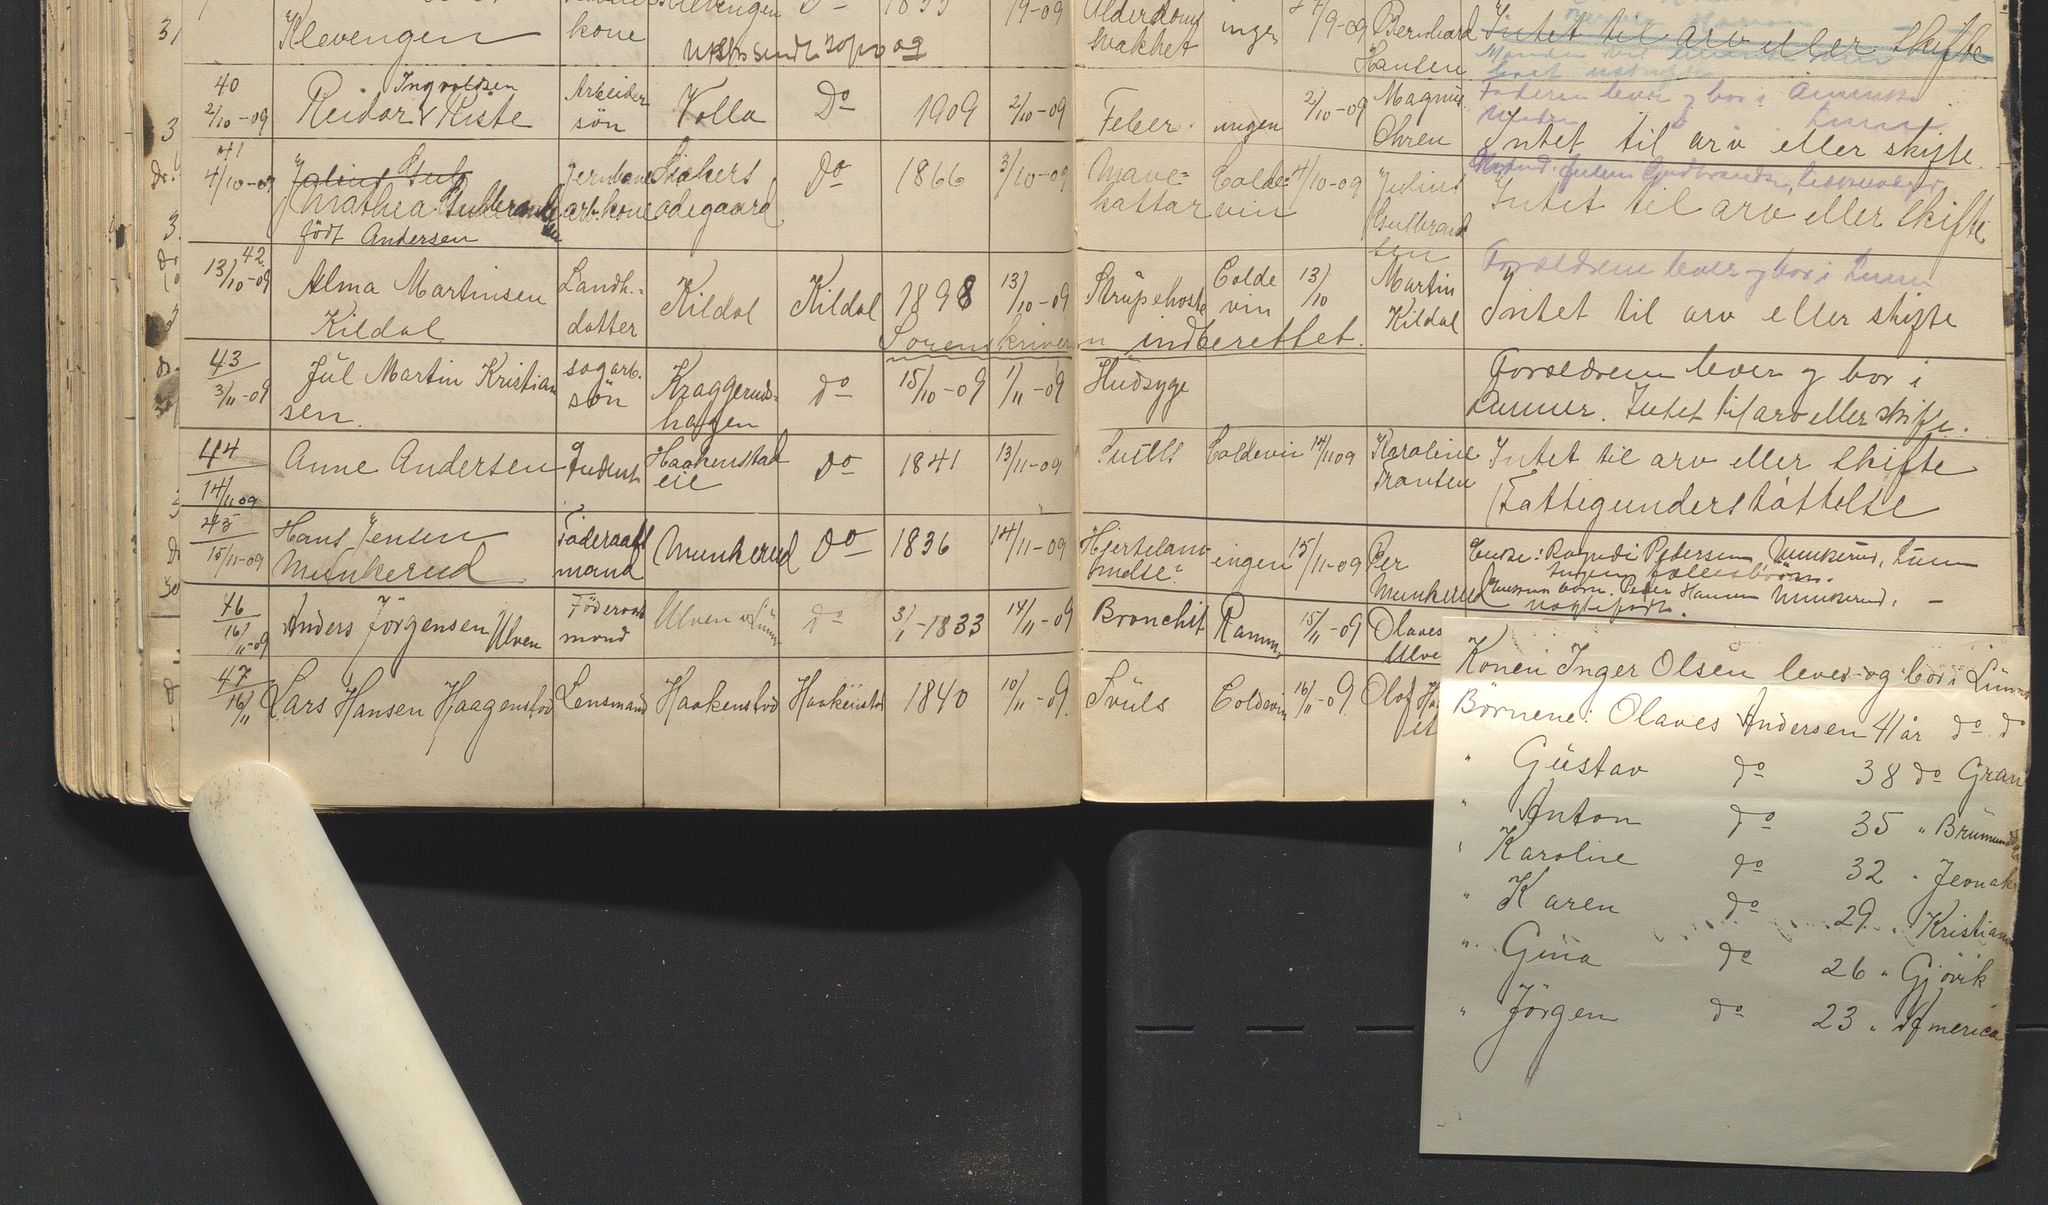 Klevengen kone Klevengen Do 1833 19-09 Alderdoms svakhet ingen 27/9-09 Bernhard Hansen Intet til arv eller skifte
40
2/10-09 Reidar Ingvoldsen Riste Arbeider søn Volla Do 1909 2/10-09 Feber ingen 2/10-09 Magnus Ohren Intet til arv eller skifte
41
4/10-09 Mathea Gulbrandsen født Andersen Jernbane arb. kone Sikers ødegaard Do 1866 3/10-09 Mave=kattar Coldevin 4/10-09 Julius Gulbrandsen Intet til arv eller skifte
42
13/10-09 Alma Martinsen Kildal Landh.=datter Kildal Kildal 1898 13/10-09 Strupehoste Coldevin 13/10 Martin Kildal Forældrene lever og bor i Lunner
Intet til arv eller skifte
Sorenskriveren indberettet.
43
3/11-09 Jul Martin Kristiansen. sagarb. søn Kraggeruds=hagen do 15/10-09 1/11-09 Hudsyge Forældrene lever og bor i
Lunner. Intet til arv eller skifte.
44
14/11 09 Anne Andersen Haakenstad eie Do 1841 13/11-09 Coldevin 14/11 09 Karoline Frantsen Intet til arv eller skifte
(Fattigunderstøttelse
45
15/11-09 Hans Jensen Munkerud Föderaads mand Munkerud Do 1836 14/11-09 Hjertelammelse ingen 15/11-09 Per Munkerud Enke: Pedersen Munkerud, Lunner
Ingen fællesbörn.
Peder Hansen Munkerud,
46
16/11-09 Anders Jörgensen Ulven Föderaads mand Ulven do 3/1-1833 14/11-09 Bronchit Ramm 15/11-09 Olaves Ulve
47
16/11 Lars Hansen Haagenstad Lensmand Haakenstad Haakenstad 1840 10/11-09. Svüls Coldevin 16/11-09. Olaf
Konen Inger Olsen lever og bor i Lünner
Börnene: Olaves Andersen 41 år do. do
" Güstav do 38 do Gran
" Anton do 35 " Brümund
" Karoline do 32 " Jevnak
" Karen do 29 " Kristian
" Gina do 26 " Gjövik
" Jörgen do 23 " America